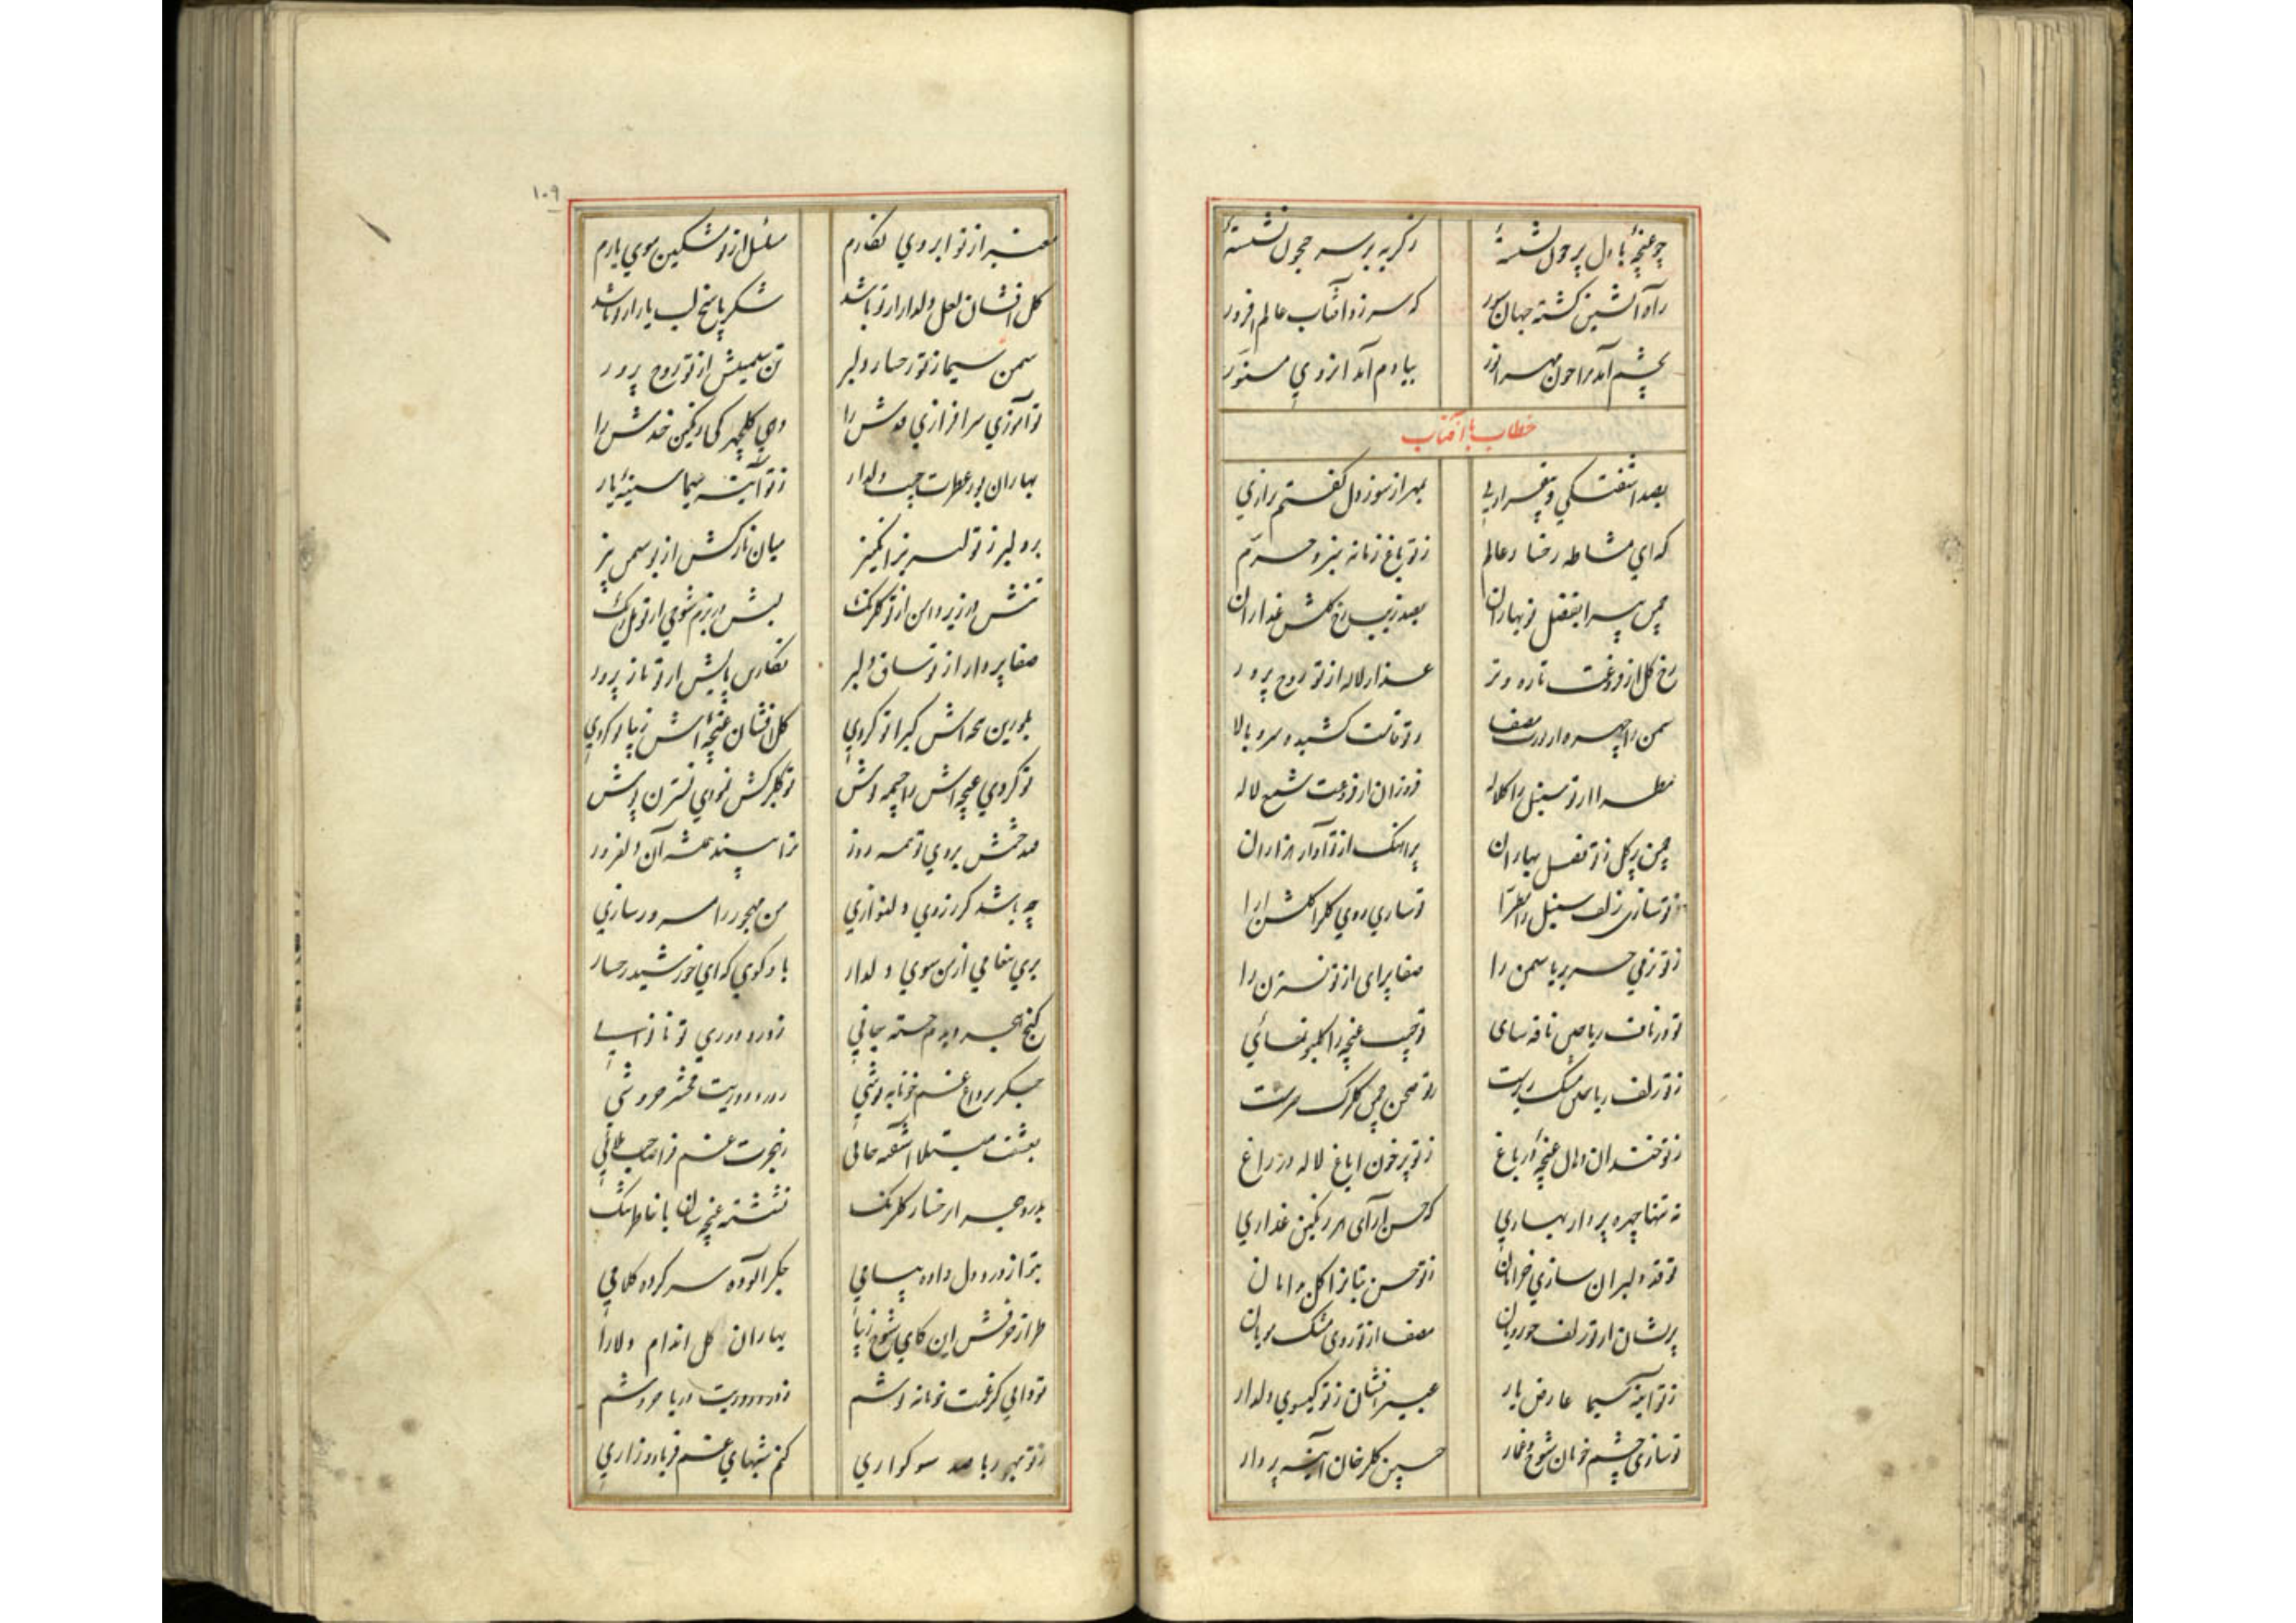 چو غنچهٔ با دل پر خون نشسته
ز گریه بر سر جیحون نشسته
ز آه آتشین گشته جهان سوز
که سر زد آفتاب عالم افروز
بچشم آمد مرا چون مهر انور
بیادم آمد از روی
خطاب با آفتاب
بصد آشفتگی و بیقراری
بمهر از سوز دل گفتم رازی
که ای مشاطه رخسار عالم
ز تو باغ زمانه سبز و خرم
چمن پیرا بفضل نوبهاران
بصد زیب رخ گلشن عذاران
رخ گل از فروغت تازه و تر
عذار لاله از تو روح پرور
سمن را چهره دارد
ز تو قامت کشیده سرو بالا
از تو سنبل را کلاله
فروزان از فروغت شمع لاله
چمن پر گل ز تو فصل بهاران
پر آهنگ از تو آواز هزاران
ز تو سازی زلف سنبل را مطرا
تو سازی روی گلرا گلشن آرا
ز تو نرمی حریر یاسمن را
صفا پرای از تو نسترن را
تو در ناف ریاحین نافه سای
تو جیب غنچه را گلبو نمائی
ز تو زلف ریاحین مشک ریزست
ز تو صحن چمن گلبرگ
ز تو خندان دهان غنچهٔ در باغ
ز تو پر خون ایاغ لاله در راغ
نه تنها چهره پرداز بهاری
که حسن آرای هر رنگین عذاری
تو قد دلبران سازی خرامان
ز تو حسن بتانرا گل بدامان
پریشان از تو زلف حوررویان
صفا از تو روی مشک مویان
ز تو آینه سیما عارض یار
عبیر افشان ز تو گیسوی دلدار
تو سازی چشم خوبان شوخ و غماز
جبین گلرخان آینه پرداز
۱۰۹
معنبر از تو ابروی نگارم
مسلسل از تو مشکین موی یارم
گل افشان لعل دلدار از تو باشد
شکر پاسخ لب یار از تو باشد
سمن سیما ز تو رخسار دلبر
تن سیمینش از تو روح پرور
تو آموزی سرافرازی قدش را
دهی گلچهرگی رنگین خدش را
بهاران بوز عطرت جیب دلدار
ز تو آینه سیما سینهٔ یار
بر دلبر ز تو لبریز انگیز
میان نازکش از تو سمن بیز
تنش در زیر دامن از تو گلرنگ
لبش در بزم شوخی از تو
صفا پرداز از تو ساق دلبر
نگارین پایش از تو ناز پرور
بلورین از تو کردی
گل افشان غنچهٔ اش زیبا تو کردی
تو کردی غنچه اش را چشمه نوش
تو گلبرگش نمودی نسترن پوش
فتد چشمش بروی تو همه روز
ترا بیند همیشه آن دلفروز
چه باشد گر ز روی دلنوازی
من مهجور را مسرور سازی
بری پیغامی از من سوی دلدار
باو گوی که ای خورشید رخسار
کنج هجر دیدم خسته جانی
ز درد دوری تو ناتوانی
جگر پر داغ غم خونابه نوشی
ز درد دوریت محشر خروشی
بعشقت مبتلا آشفته حالی
ز هجرت غم
بدرد هجر از رخسار گلرنگ
نشسته غنچه سان با خاطر تنگ
بتو از درد دل داده پیامی
جگر آلوده سر کرده کلامی
طراز حرفش این کای شوخ زیبا
بهاران گل اندام دلارا
تو دانی کز غمت خونابه نوشم
ز درد دوریت دریا خروشم
ز تو مهجور با صد سوگواری
کنم شبهای غم فریاد و زاری